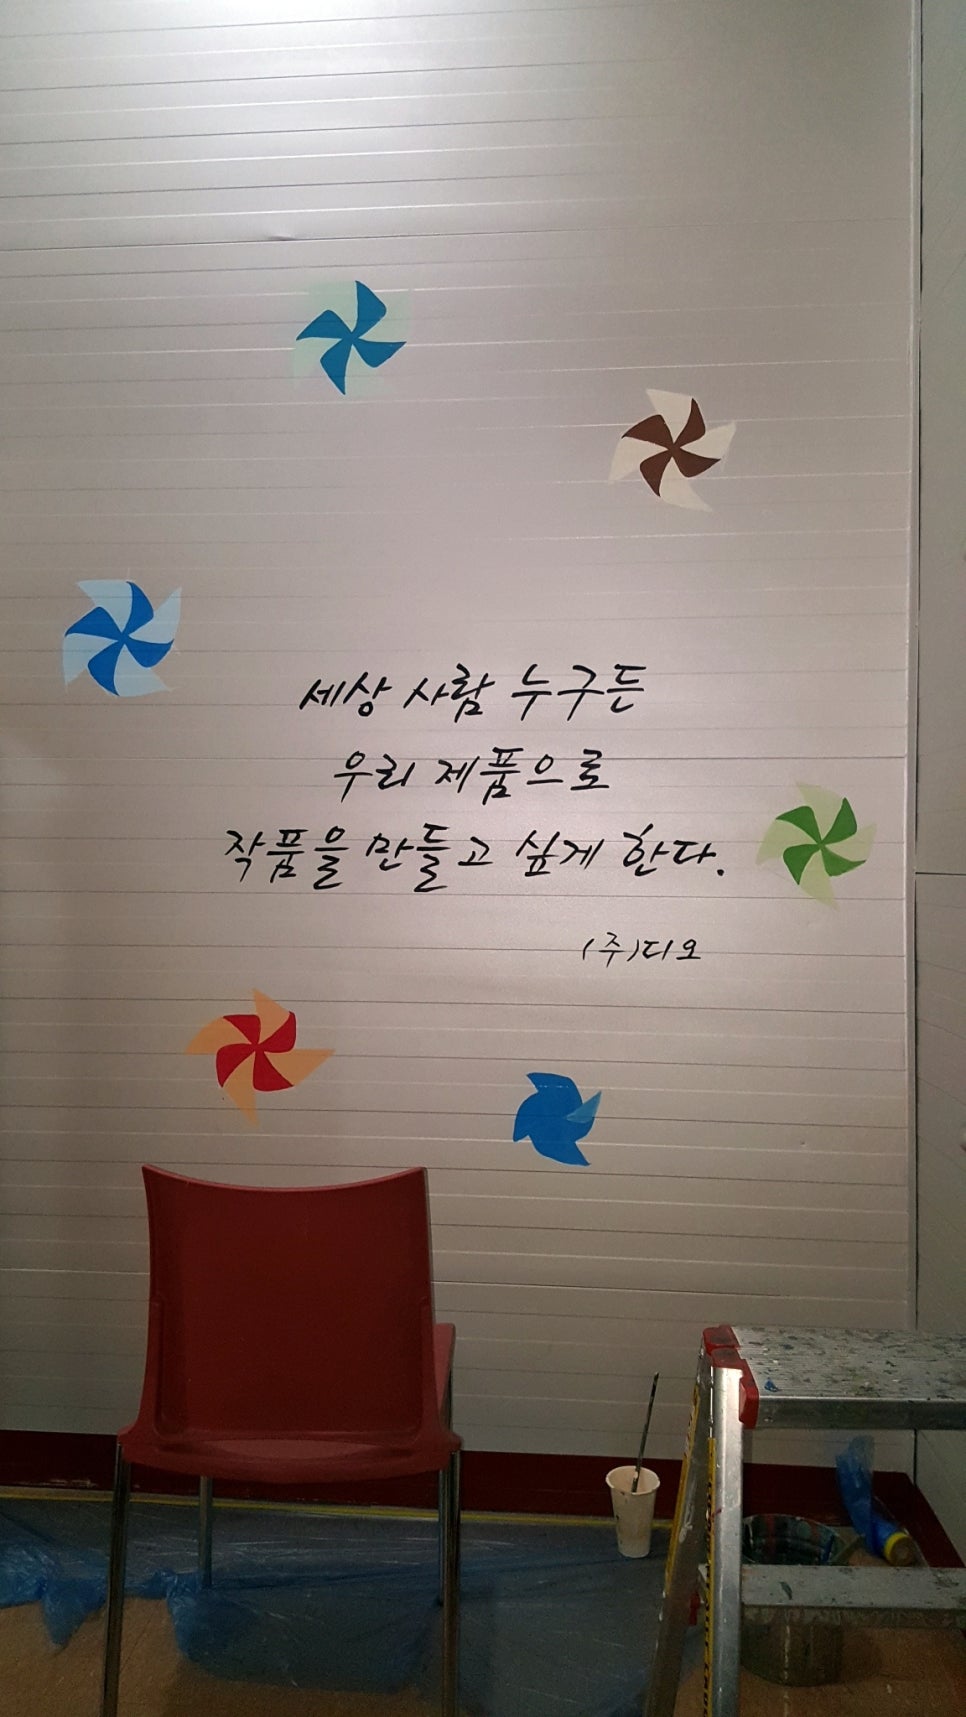 세상 사람 누구든
우리 제품으로
작품을 만들고 싶게 한다.
(주)디오